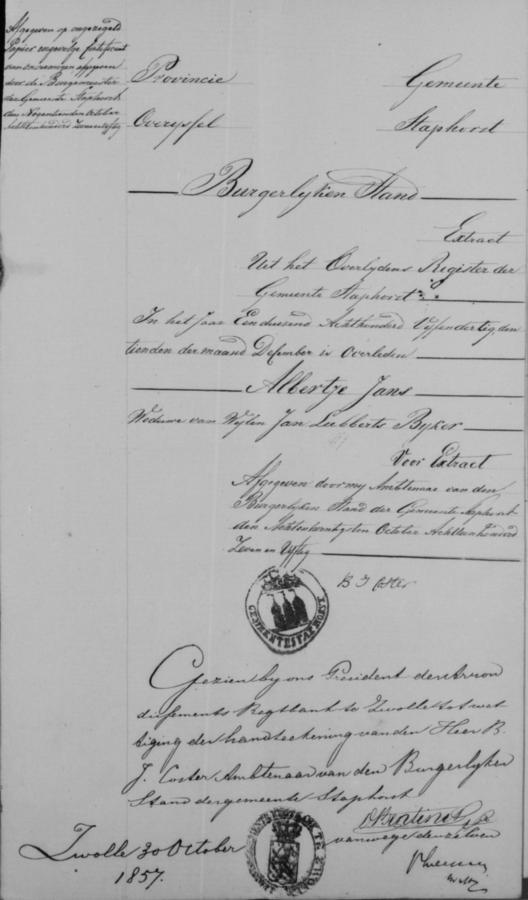 Afgegeven op ongezegeld
Papier ongevolge Certificaat
van onvermogen afgegeven
door den Burgemeester
der Gemeente Staphorst
den Negentienden October
Achttienhonderd Zevenenvyftig
Provincie
Overyssel
Gemeente
Staphorst
Burgerlyken Stand
Extract
Uit het Overlydens Register der
Gemeente Staphorst
In het Jaar Een duusend Achthonderd Vyfendertig, den
tienden der maand December is Overleden
Albertje Jans
Weduwe van Wylen Jan Lubberts Byker
Voor Extract
Afgegeven door my Ambtenaar van den
Burgerlyken Stand der Gemeente Staphorst
den Achtentwintigsten October Achttienhonderd
Zeven en Vyftig
B J Coster
GEMEENTE STAPHORST
Gezien by ons President der Arron
dissements Regtbank te Zwolle tot wet
tiging der handteekening van den Heer B.
J. Coster Ambtenaar van den Burgerlyken
Stand der gemeente Staphorst
Zwolle 30 October
1857.
vanwege denzelven